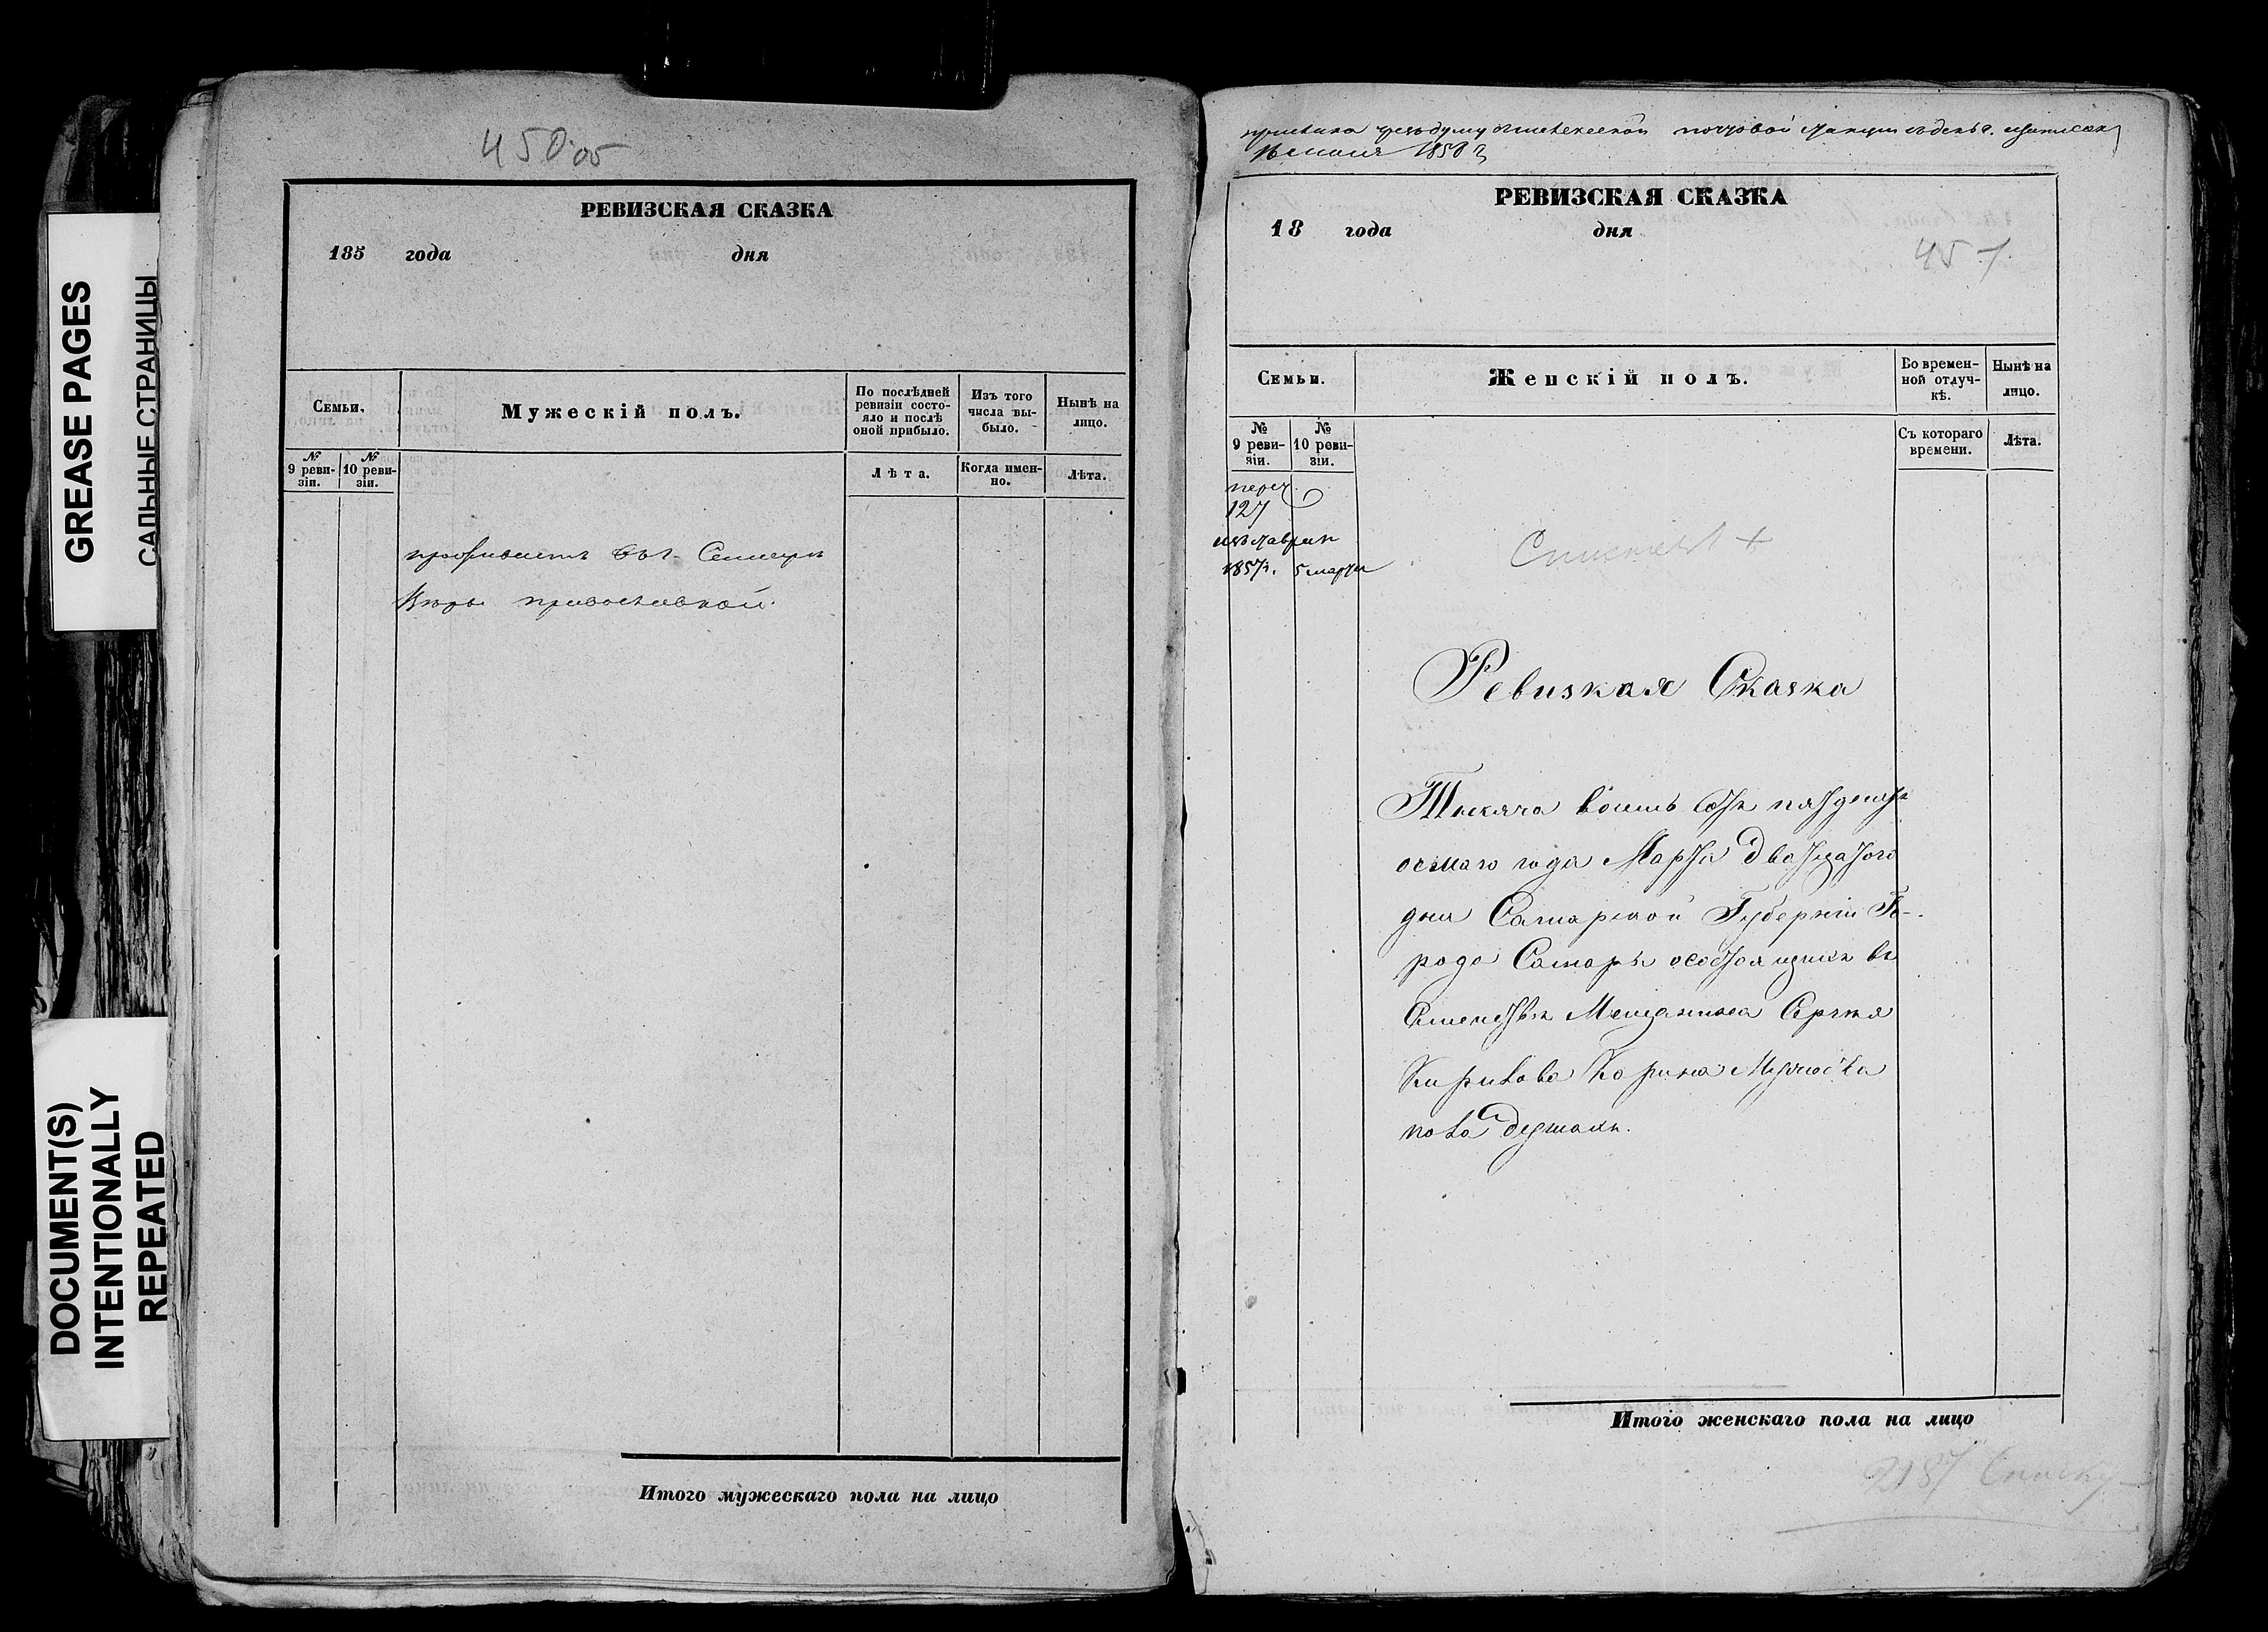 GREASE PAGES
САЛЬНЫЕ СТРАНИЦЫ
DOCUMENT(S)
INTENTIONALLY
REPEATED
450 об
РЕВИЗСКАЯ СКАЗКА
185 года дня
Семьи.
Мужескій полъ.
По послѣдней
ревизіи состо-
яло и послѣ
оной прибыло.
Изъ того
числа вы-
было.
Нынѣ на
лицо.
№
9 реви-
зіи.
№
10 реви-
зіи.
Лѣта.
Когда имен-
но.
Лѣта.
проживаетъ въ г. Самаре
Веры православной.
Итого мужескаго пола на лицо
почтовой
1858
РЕВИЗСКАЯ СКАЗКА
18 года дня
451
Семьи.
Женскій полъ.
Во времен-
ной отлуч-
кѣ.
Нынѣ на
лицо.
№
9 реви-
зіи.
№
10 реви-
зіи.
Съ котораго
времени.
Лѣта.
127
1857 г. 5 марта
Ревизкая Сказка
Тысяча восемь сотъ пятдесятъ
осмаго года Марта двадцатого
дня Самарской Губерніи Го-
рода Самары о состоящихъ въ
семействѣ Мещанина Сергея
Кирилова Карина Мужеска
пола душахъ.
Итого женскаго пола на лицо